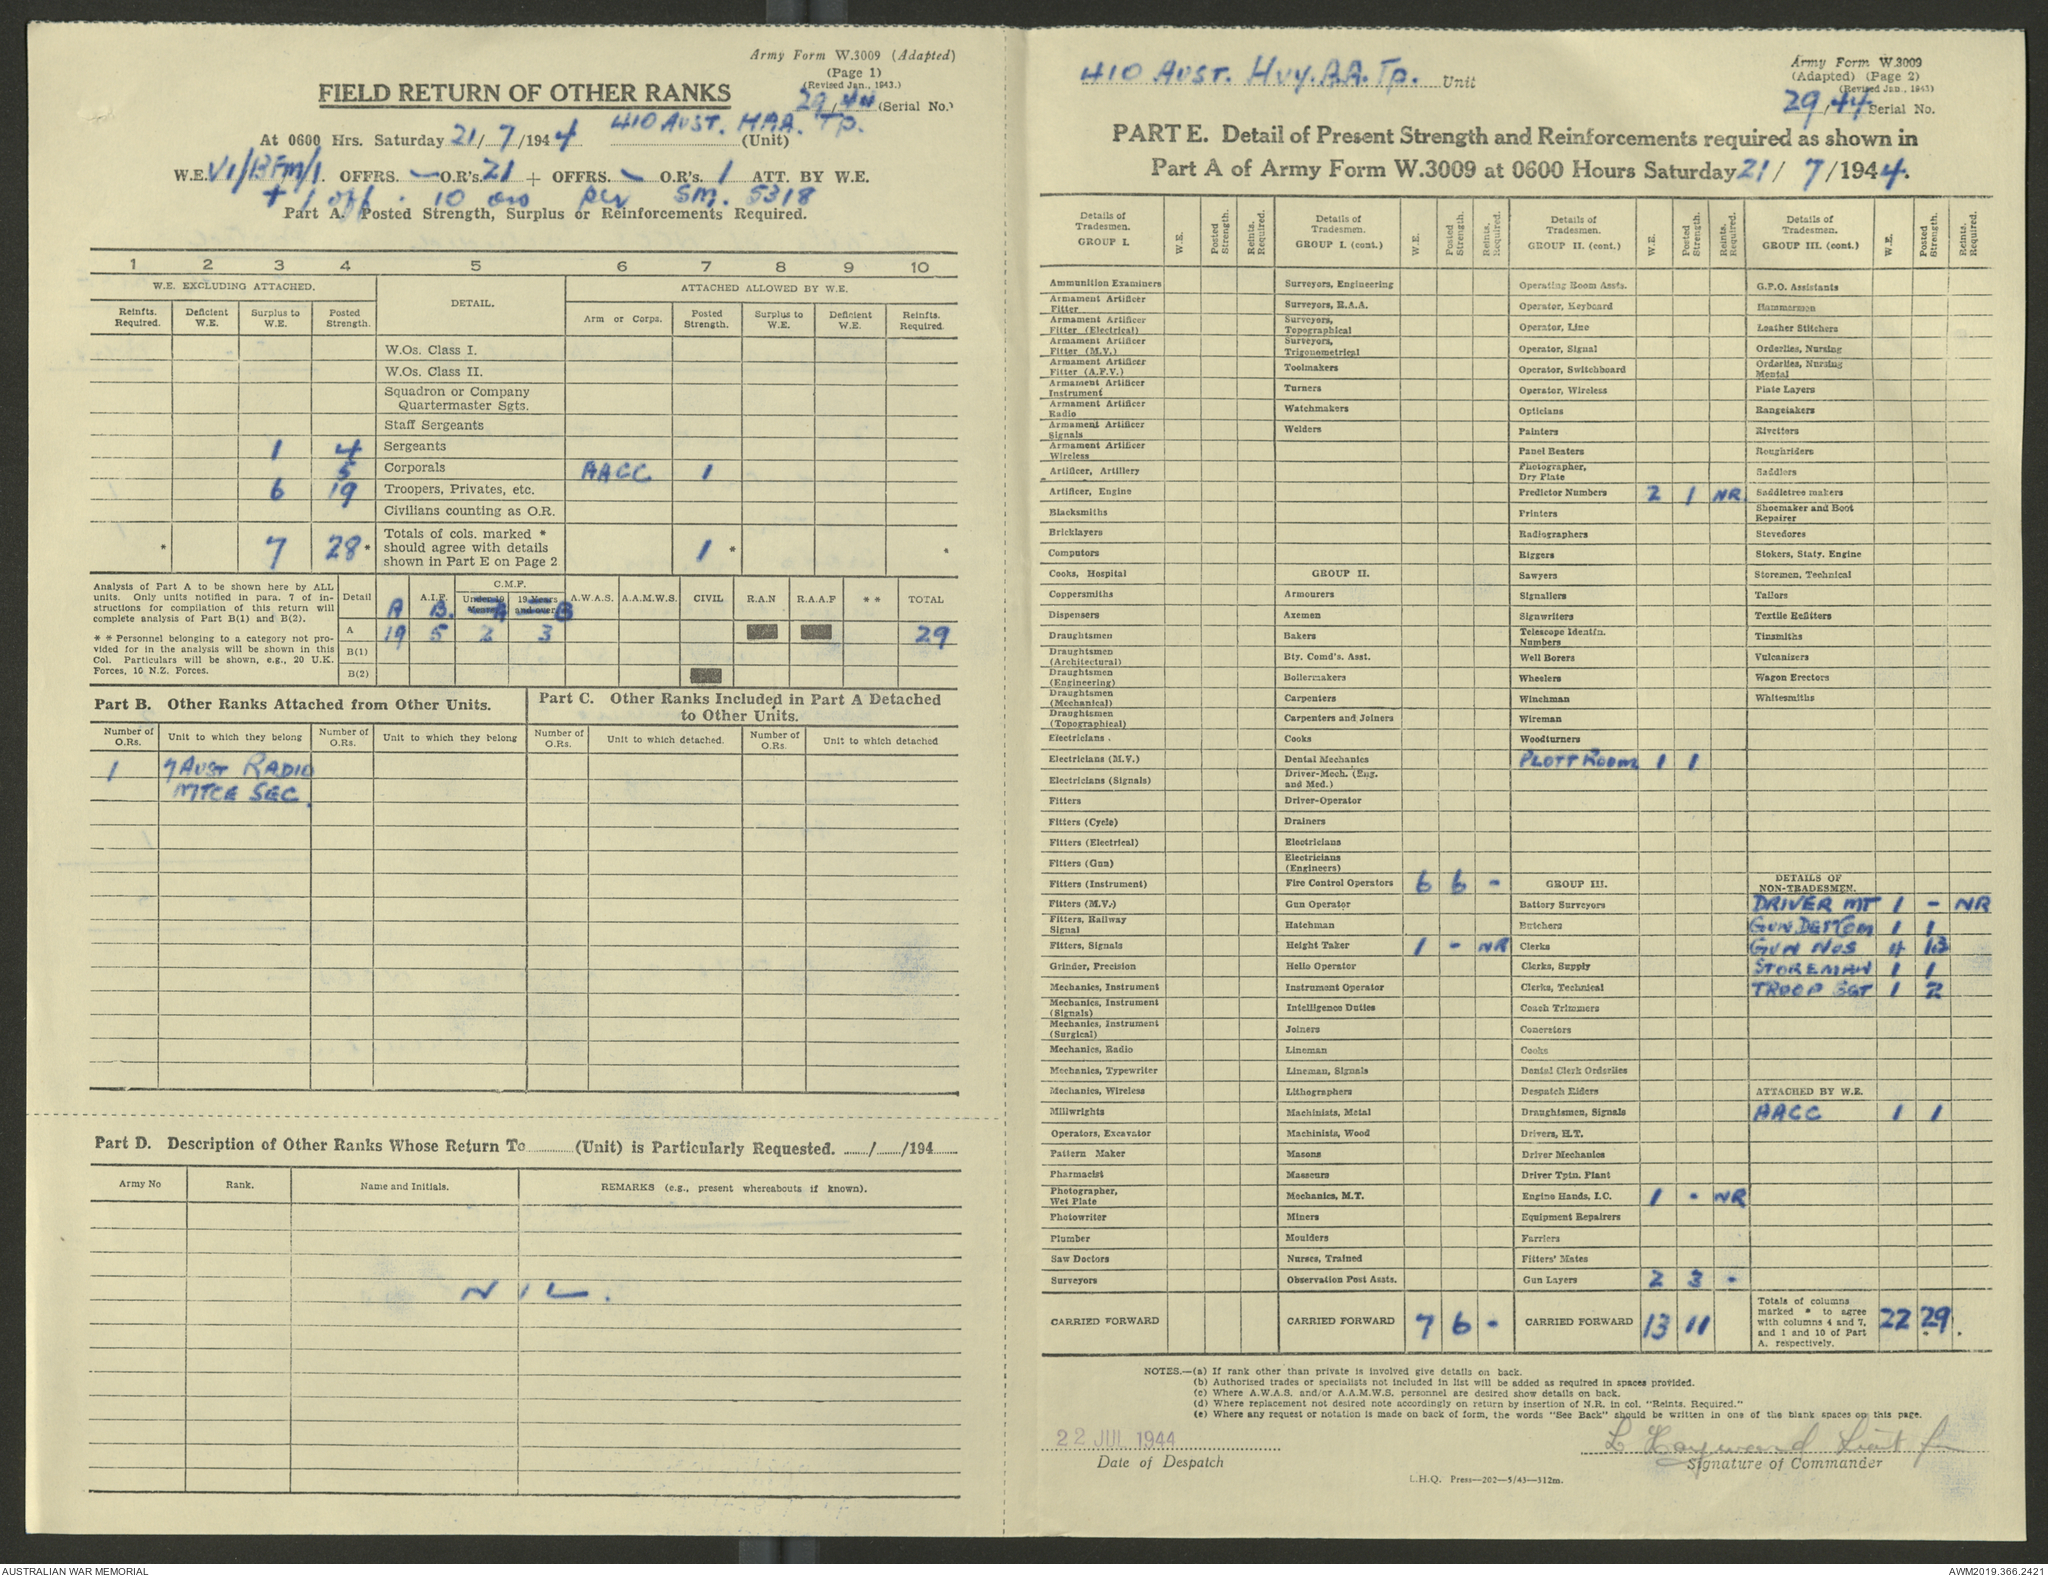 Army Form W.3009 (Adapted)
(Page 1)
(Revised Jan., 1943.)
FIELD RETURN OF OTHER RANKS
29/44 (Serial No.)
410 AUST. HAA. Tp.
At 0600 Hrs. Saturday 21/7/1944 (Unit)
W.E. VI/BFM/1. OFFRS. – O.R's. 21 + OFFRS. – O.R's. 1 ATT. BY W.E.
+ 1 off. 10 ors per SM. 5318
Part A. Posted Strength, Surplus or Reinforcements Required.
1 2 3 4 5 6 7 8 9 10
W.E. EXCLUDING ATTACHED. DETAIL. ATTACHED ALLOWED BY W.E.
Reinfts. Required. Deficient W.E. Surplus to W.E. Posted Strength. Arm or Corps. Posted Strength. Surplus to W.E. Deficient W.E. Reinfts. Required.
W.Os. Class I.
W.Os. Class II.
Squadron or Company
Quartermaster Sgts.
Staff Sergeants
1 4 Sergeants
5 Corporals AACC 1
6 19 Troopers, Privates, etc.
Civilians counting as O.R.
* 7 28* Totals of cols. marked * should agree with details shown in Part E on Page 2 1 * *
Analysis of Part A to be shown here by ALL
units. Only units notified in para. 7 of in-
structions for compilation of this return will
complete analysis of Part B(1) and B(2).
* * Personnel belonging to a category not pro-
vided for in the analysis will be shown in this
Col. Particulars will be shown, e.g., 20 U.K.
Forces, 10 N.Z. Forces.
Detail A.I.F. C.M.F. Under 19 Years 19 Years and over A.W.A.S. A.A.M.W.S. CIVIL R.A.N R.A.A.F * * TOTAL
A B. A B
A 19 5 2 3 29
B(1)
B(2)
Part B. Other Ranks Attached from Other Units.
Part C. Other Ranks Included in Part A Detached
to Other Units.
Number of O.Rs. Unit to which they belong Number of O.Rs. Unit to which they belong Number of O.Rs. Unit to which detached. Number of O.Rs. Unit to which detached
1 7 AUST RADIO
MTCE SEC.
Part D. Description of Other Ranks Whose Return To (Unit) is Particularly Requested. / /194
Army No Rank. Name and Initials. REMARKS (e.g., present whereabouts if known).
NIL.
Army Form W.3009
(Adapted) (Page 2)
(Revised Jan., 1943)
410 AUST. HVY. A.A. Tp. Unit
29/44 Serial No.
PART E. Detail of Present Strength and Reinforcements required as shown in
Part A of Army Form W.3009 at 0600 Hours Saturday 21/7/1944.
Details of Tradesmen. GROUP I. W.E. Posted Strength. Reints. Required.
Ammunition Examiners
Armament Artificer Fitter
Armament Artificer Fitter (Electrical)
Armament Artificer Fitter (M.V.)
Armament Artificer Fitter (A.F.V.)
Armament Artificer Instrument
Armament Artificer Radio
Armament Artificer Signals
Armament Artificer Wireless
Artificer, Artillery
Artificer, Engine
Blacksmiths
Bricklayers
Computors
Cooks, Hospital
Coppersmiths
Dispensers
Draughtsmen
Draughtsmen (Architectural)
Draughtsmen (Engineering)
Draughtsmen (Mechanical)
Draughtsmen (Topographical)
Electricians .
Electricians (M.V.)
Electricians (Signals)
Fitters
Fitters (Cycle)
Fitters (Electrical)
Fitters (Gun)
Fitters (Instrument)
Fitters (M.V.)
Fitters, Railway Signal
Fitters, Signals
Grinder, Precision
Mechanics, Instrument
Mechanics, Instrument (Signals)
Mechanics, Instrument (Surgical)
Mechanics, Radio
Mechanics, Typewriter
Mechanics, Wireless
Millwrights
Operators, Excavator
Pattern Maker
Pharmacist
Photographer, Wet Plate
Photowriter
Plumber
Saw Doctors
Surveyors
CARRIED FORWARD
Details of Tradesmen. GROUP I. (cont.) W.E. Posted Strength. Reints. Required.
Surveyors, Engineering
Surveyors, R.A.A.
Surveyors, Topographical
Surveyors, Trigonometrical
Toolmakers
Turners
Watchmakers
Welders
GROUP II.
Armourers
Axemen
Bakers
Bty. Comd's. Asst.
Boilermakers
Carpenters
Carpenters and Joiners
Cooks
Dental Mechanics
Driver-Mech. (Eng. and Med.)
Driver-Operator
Drainers
Electricians
Electricians (Engineers)
Fire Control Operators 6 6 -
Gun Operator
Hatchman
Height Taker 1 - NR
Helio Operator
Instrument Operator
Intelligence Duties
Joiners
Lineman
Lineman, Signals
Lithographers
Machinists, Metal
Machinists, Wood
Masons
Masseurs
Mechanics, M.T.
Miners
Moulders
Nurses, Trained
Observation Post Assts.
CARRIED FORWARD 7 6 -
Details of Tradesmen. GROUP II. (cont.) W.E. Posted Strength. Reints. Required.
Operating Room Assts.
Operator, Keyboard
Operator, Line
Operator, Signal
Operator, Switchboard
Operator, Wireless
Opticians
Painters
Panel Beaters
Photographer, Dry Plate
Predictor Numbers 2 1 NR
Printers
Radiographers
Riggers
Sawyers
Signallers
Signwriters
Telescope Identfn. Numbers
Well Borers
Wheelers
Winchman
Wireman
Woodturners
PLOTT ROOM 1 1
GROUP III.
Battery Surveyors
Butchers
Clerks
Clerks, Supply
Clerks, Technical
Coach Trimmers
Concretors
Cooks
Dental Clerk Orderlies
Despatch Riders
Draughtsmen, Signals
Drivers, H.T.
Driver Mechanics
Driver Tptn. Plant
Engine Hands, I.C. 1 - NR
Equipment Repairers
Farriers
Fitters' Mates
Gun Layers 2 3 -
CARRIED FORWARD 13 11
Details of Tradesmen. GROUP III. (cont.) W.E. Posted Strength. Reints. Required.
G.P.O. Assistants
Hammermen
Leather Stitchers
Orderlies, Nursing
Orderlies, Nursing Mental
Plate Layers
Rangetakers
Rivetters
Roughriders
Saddlers
Saddletree makers
Shoemaker and Boot Repairer
Stevedores
Stokers, Staty. Engine
Storemen, Technical
Tailors
Textile Refitters
Tinsmiths
Vulcanizers
Wagon Erectors
Whitesmiths
DETAILS OF NON-TRADESMEN.
DRIVER MT 1 - NR
GUN DET COM 1 1
GUN NOS 4 13
STOREMAN 1 1
TROOP SGT 1 2
ATTACHED BY W.E.
AACC 1 1
Totals of columns marked * to agree with columns 4 and 7, and 1 and 10 of Part A. respectively. 22 29
NOTES.—(a) If rank other than private is involved give details on back.
(b) Authorised trades or specialists not included in list will be added as required in spaces provided.
(c) Where A.W.A.S. and/or A.A.M.W.S. personnel are desired show details on back.
(d) Where replacement not desired note accordingly on return by insertion of N.R. in col. "Reints. Required."
(e) Where any request or notation is made on back of form, the words "See Back" should be written in one of the blank spaces on this page.
22 JUL 1944
L Hayward Lieut for
Date of Despatch
Signature of Commander
L.H.Q. Press—202—5/43—312m.
AUSTRALIAN WAR MEMORIAL
AWM2019.366.2421